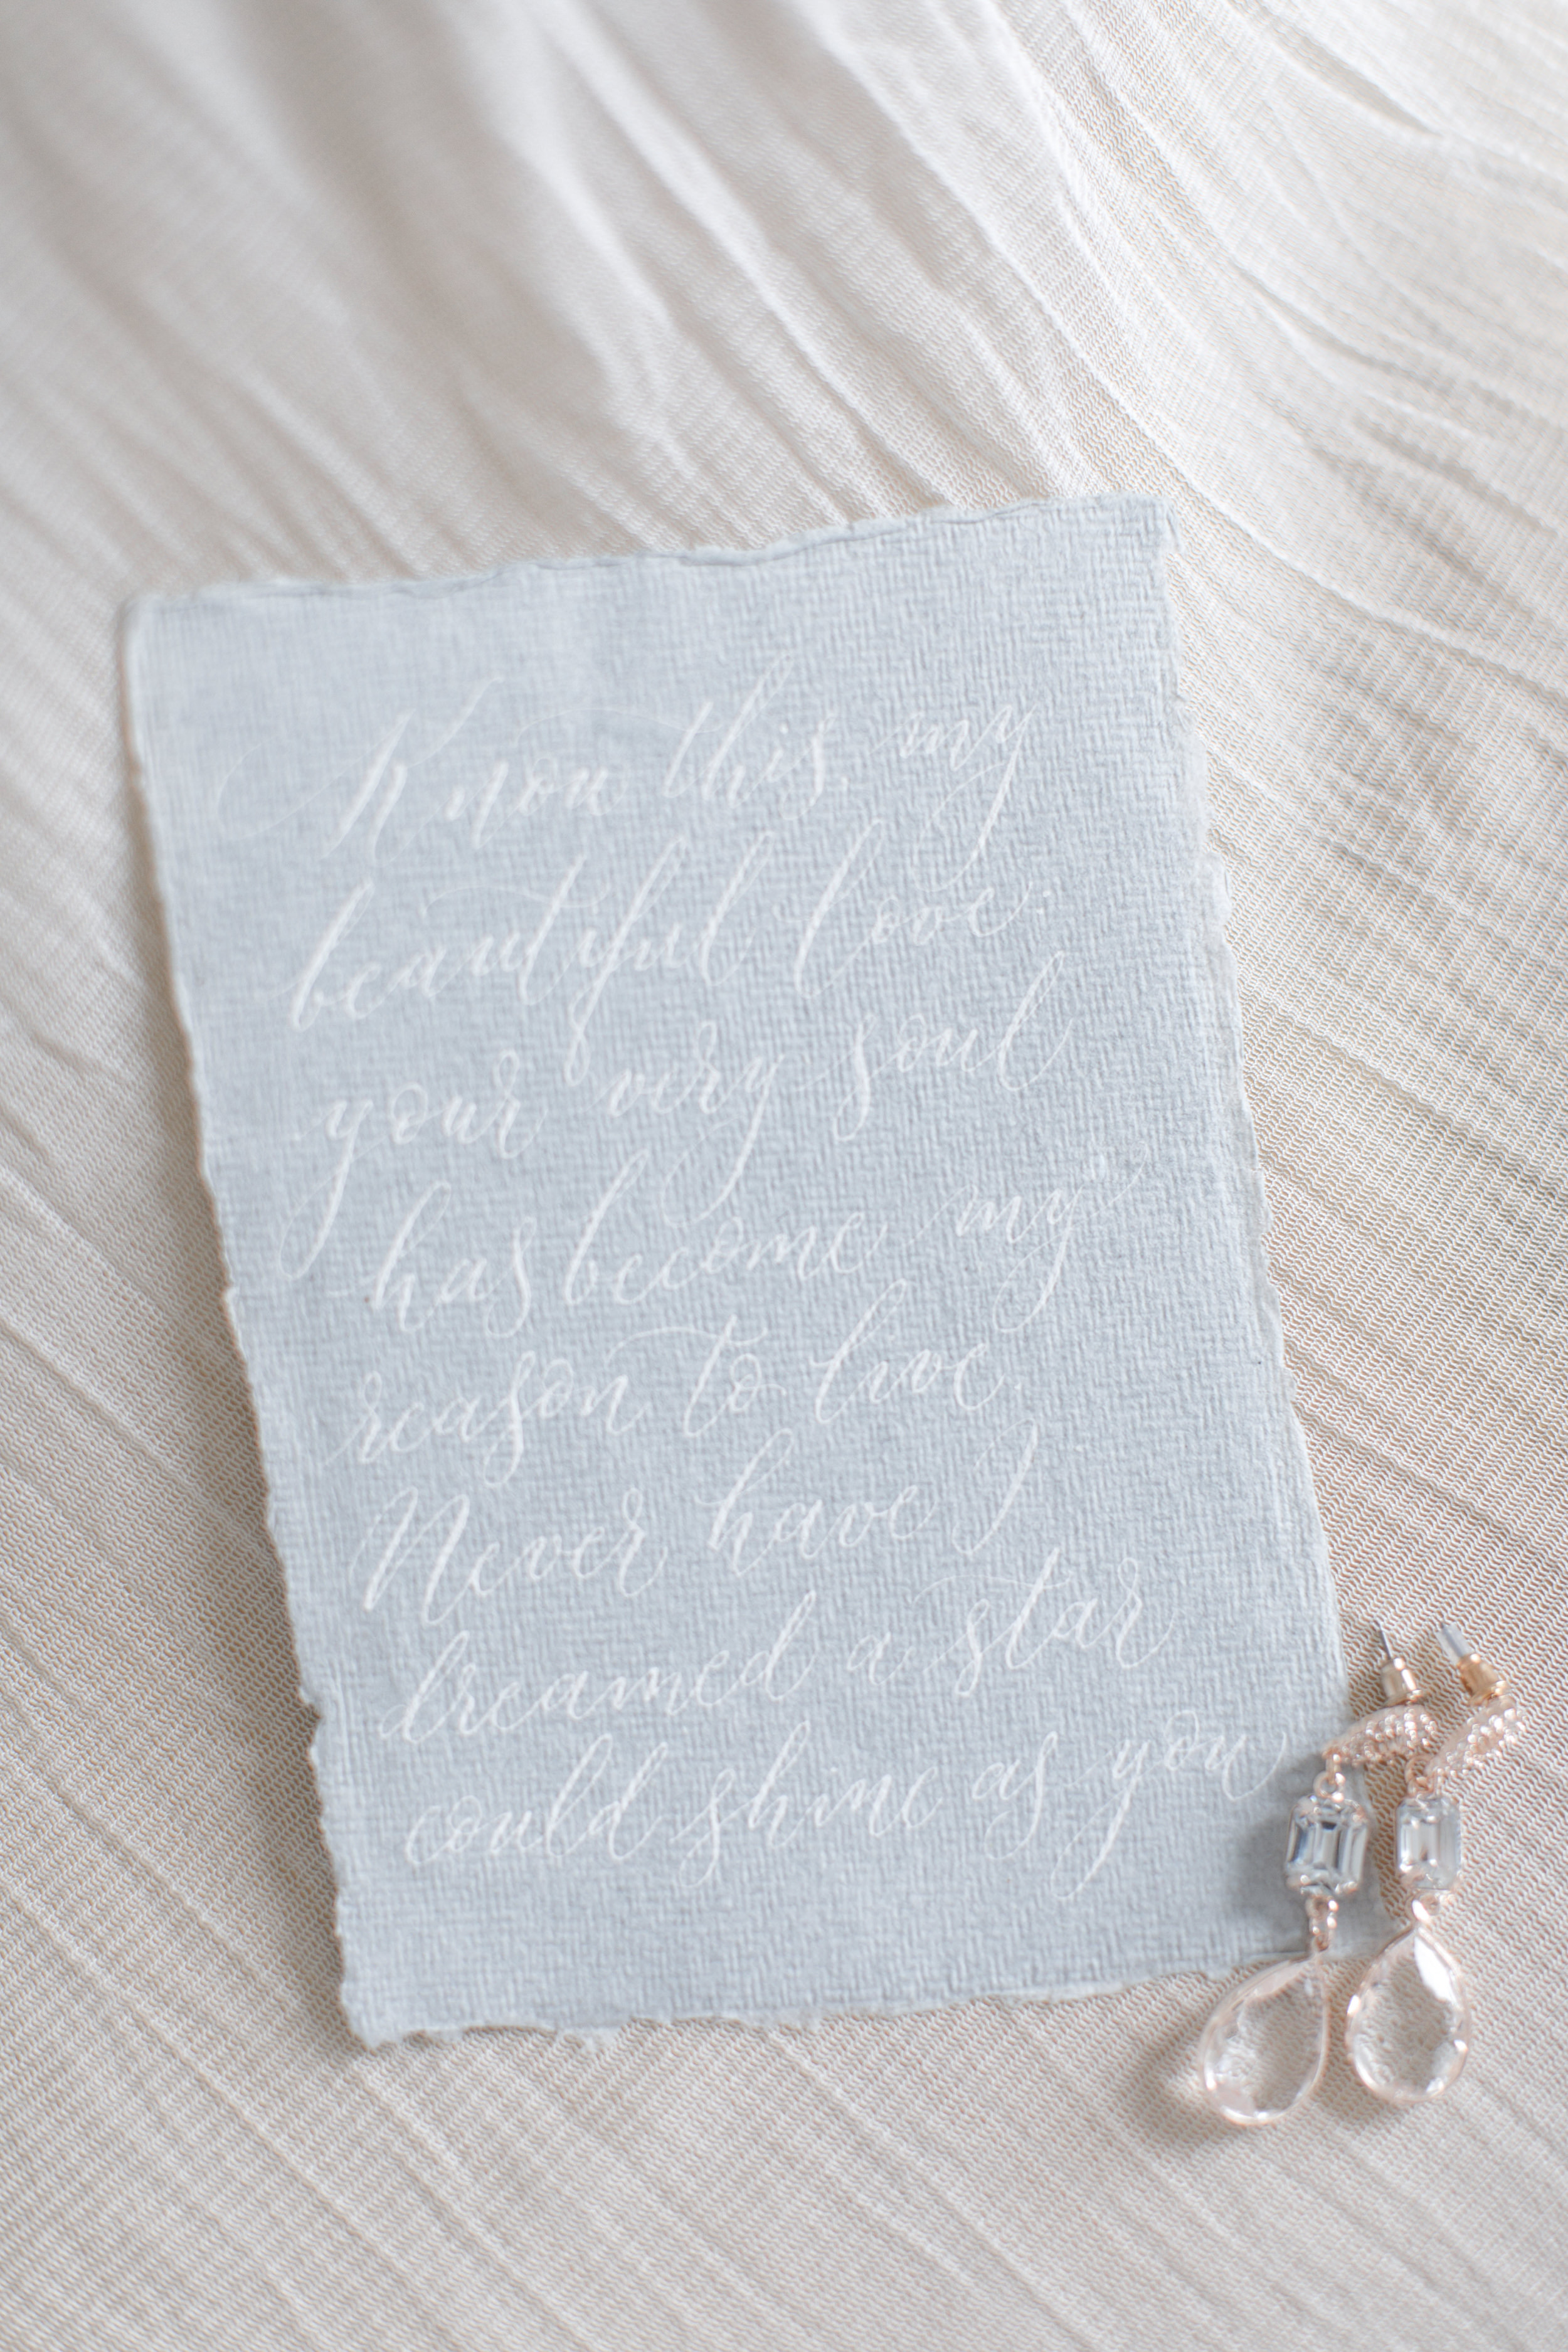 Know this, my
beautiful love:
your very soul
has become my
reason to live.
Never have I
dreamed a star
could shine as you